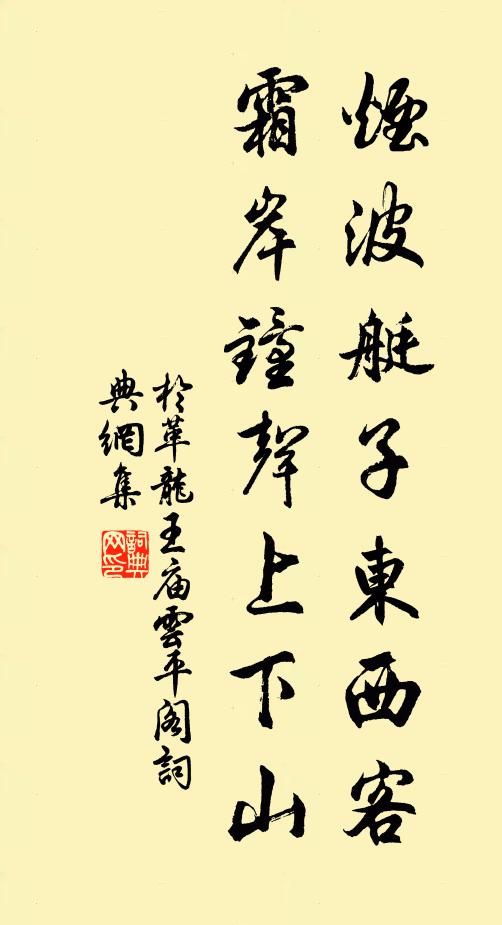 煙波艇子東西客
霜岸鐘聲上下山
於華龍王庙雲平閣詞
典網集
詞典网印